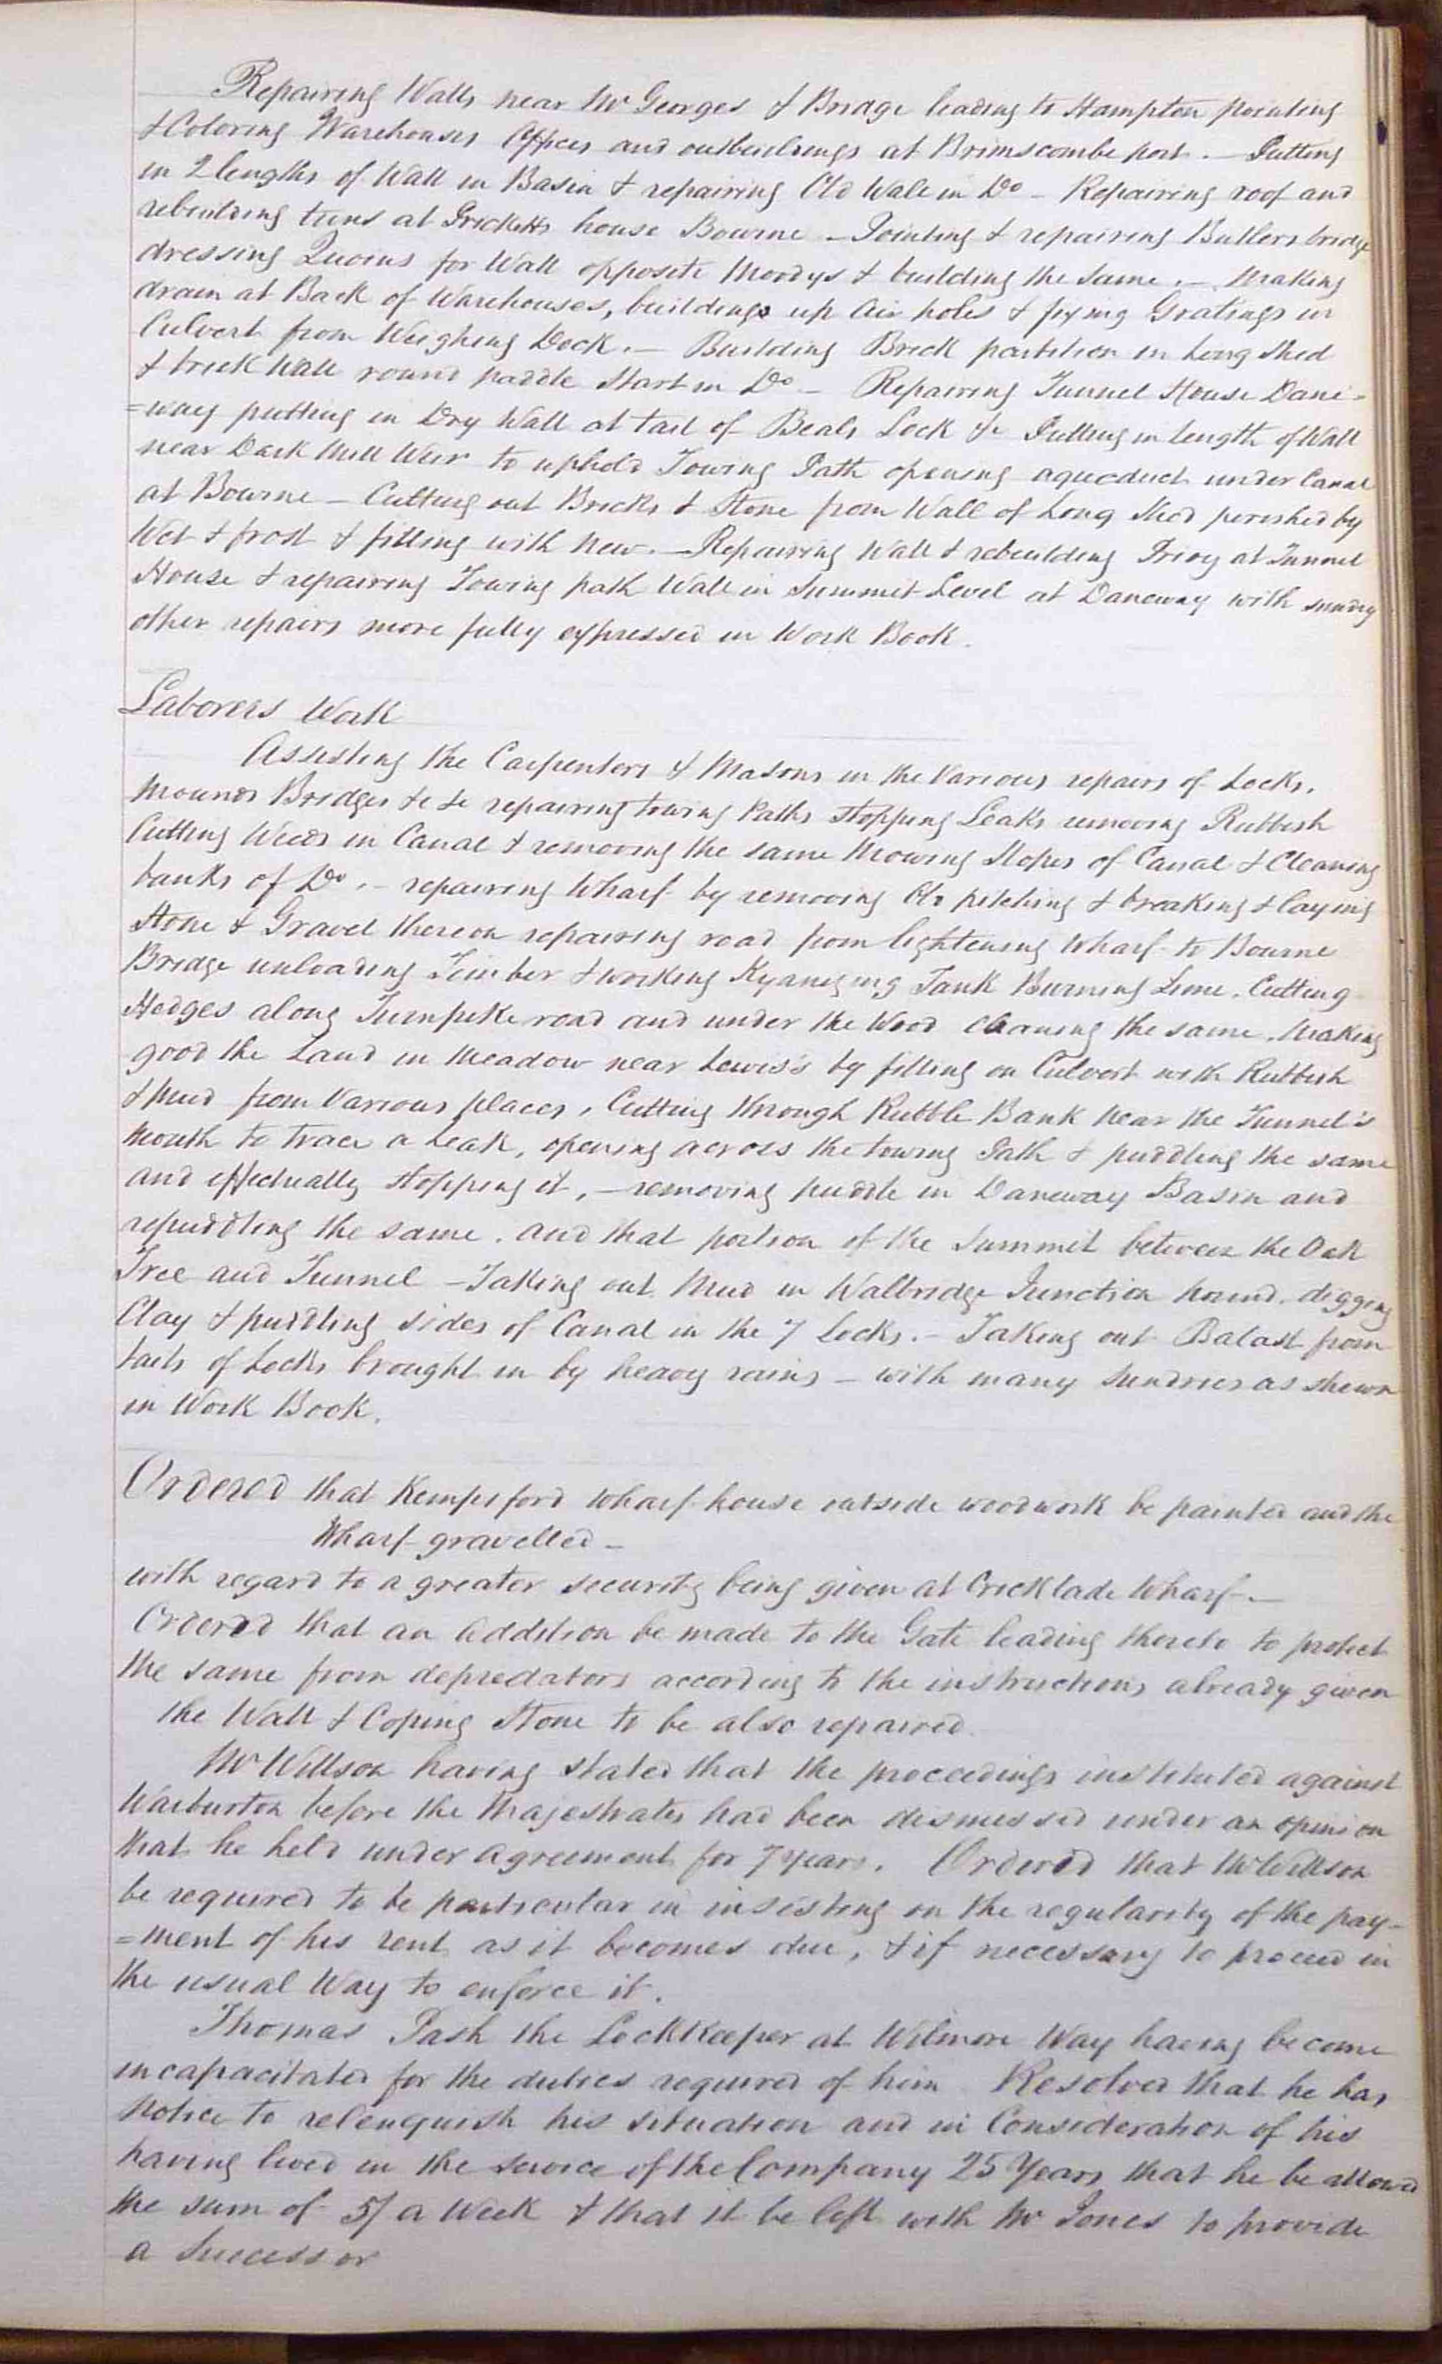 Repairing Walls near Mr Georges & Bridge leading to Hampton pointing
& Coloring Warehouses Offices and outbuildings at Brimscombe port. — Putting
in 2 lengths of Wall in Basin & repairing Old Wall in Do — Repairing roof and
rebuilding tuns at Pricketts house Bourne — Pointing & repairing Butlers bridge
dressing Quoins for Wall opposite Moodys & building the same. — Making
drain at Back of Warehouses, buildings up Air holes & fixing Gratings in
Culvert from Weighing Dock. — Building Brick partition in Long Shed
& brick Wall round paddle Start in Do — Repairing Tunnel House Dane-
=way putting in Dry Wall at tail of Beals Lock &c Putting in length of Wall
near Dark Mill Weir to uphold Towing Path opening aqueduct under Canal
at Bourne — Cutting out Bricks & Stone from Wall of Long Shed perished by
Wet & frost & filling with New. — Repairing Wall & rebuilding Privy at Tunnel
House & repairing Towing path Wall in Summit Level at Daneway with sundry
other repairs more fully expressed in Work Book.
Laborers Work
Assisting the Carpenters & Masons in the Various repairs of Locks,
Mounds Bridges &c &c repairing towing Paths Stopping Leaks removing Rubbish
Cutting Weeds in Canal & removing the same Mowing Slopes of Canal & Cleaning
banks of Do. — repairing Wharf by removing Old pitching & breaking & laying
Stone & Gravel thereon repairing road from lightening Wharf to Bourne
Bridge unloading Timber & working Kyanizing Tank Burning Lime. Cutting
Hedges along Turnpike road and under the Wood cleaning the same. Making
good the Land in Meadow near Lewis's by filling on Culvert with Rubbish
& Mud from Various places, Cutting through Rubble Bank near the Tunnel's
Mouth to trace a Leak, opening across the towing Path & puddling the same
and effectually Stopping it, — removing puddle in Daneway Basin and
repuddling the same. and that portion of the Summit between the Oak
Tree and Tunnel — Taking out Mud in Walbridge Junction pound. digging
Clay & puddling sides of Canal in the 7 Locks. — Taking out Balast from
tails of Locks brought in by heavy rains — with many Sundries as shewn
in Work Book.
Ordered that Kempsford Wharf house outside woodwork be painted and the
Wharf gravelled —
with regard to a greater security being given at Cricklade Wharf. —
Ordered that an Addition be made to the Gate leading thereto to protect
the same from depredators according to the instructions already given
the Wall & Coping Stone to be also repaired.
Mr Willson having stated that the proceedings instituted against
Warburton before the Majestrates had been dismissed under an opinion
that he held under Agreement for 7 years. Ordered that Mr Willson
be required to be particular in insisting on the regularity of the pay-
=ment of his rent as it becomes due, & if necessary to proceed in
the usual Way to enforce it.
Thomas Pash the LockKeeper at Wilmore Way having become
incapacitated for the duties required of him Resolved that he has
Notice to relenquish his situation and in Consideration of his
having lived in the service of the Company 25 Years that he be allowed
the sum of 5/ a Week & that it be left with Mr Jones to provide
a Successor